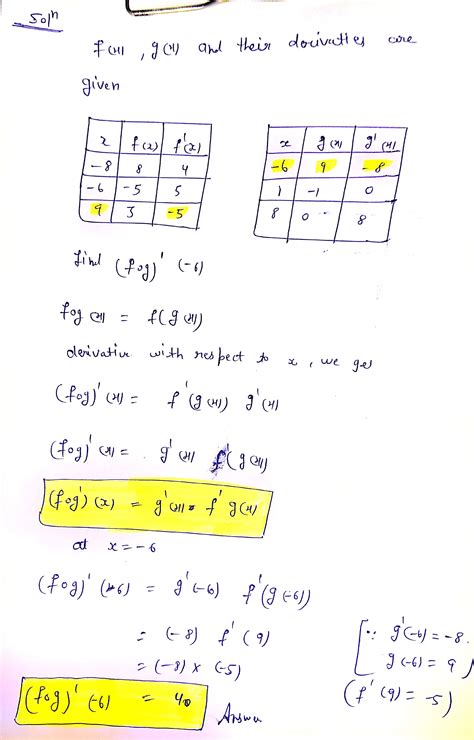 Soln
f(x), g(x) and their derivatives are
given
x f(x) f'(x)
-8 8 4
-6 -5 5
9 3 -5
x g(x) g'(x)
-6 9 -8
1 -1 0
8 0 8
find (fog)' (-6)
fog (x) = f(g(x))
derivative with respect to x, we get
(fog)' (x) = f'(g(x)) g'(x)
(fog)' (x) = g'(x) f'(g(x))
(fog)'(x) = g'(x) * f' g(x)
at x = -6
(fog)' (-6) = g'(-6) f'(g(-6))
= (-8) f'(9)
= (-8) x (-5)
(fog)' (-6) = 40 Answer
[∵ g'(-6) = -8
g(-6) = 9
(f'(9) = -5)